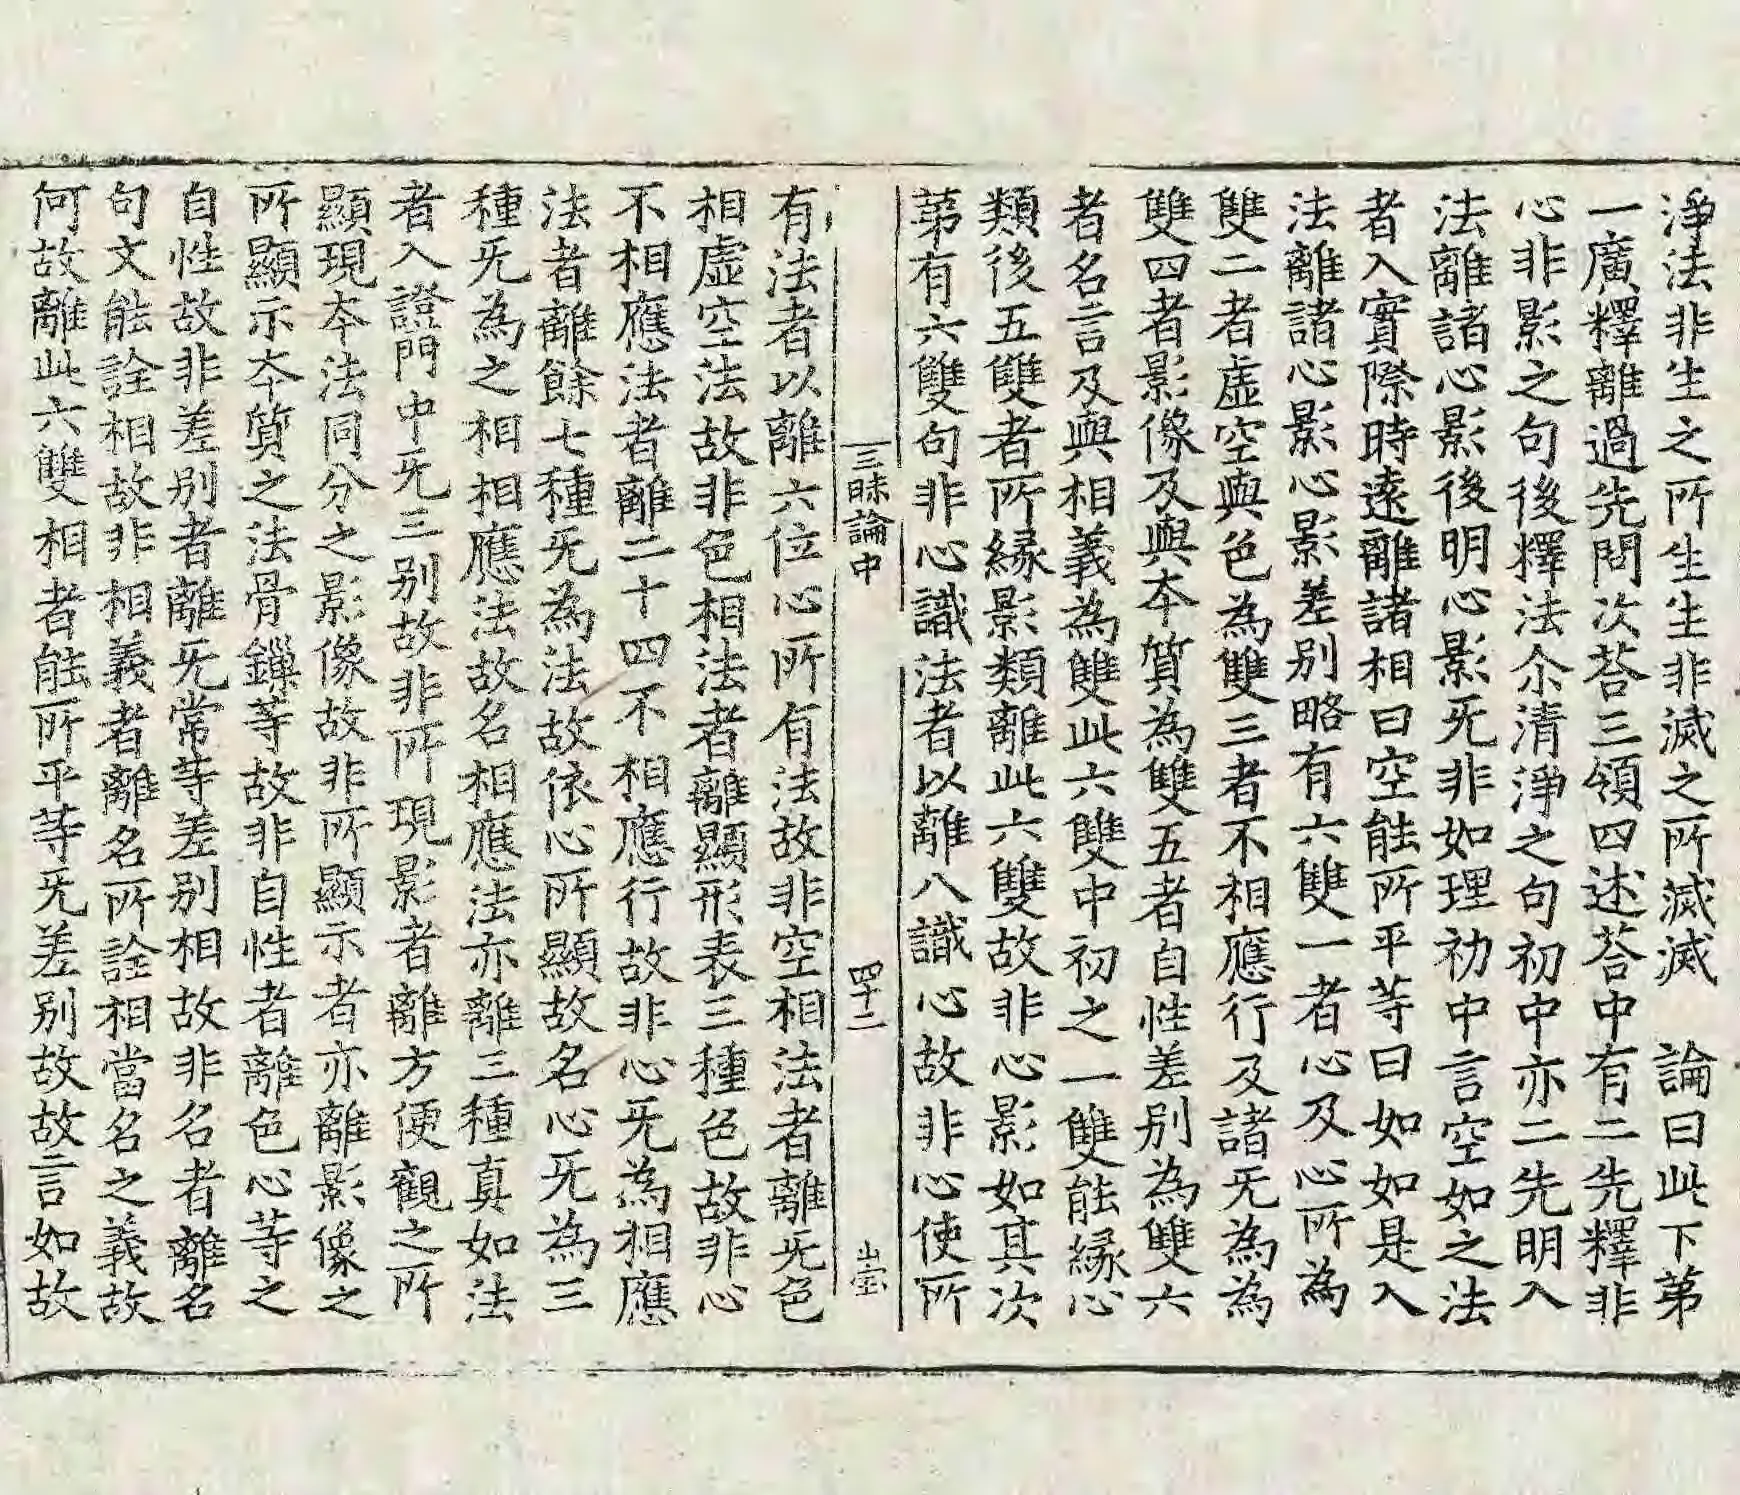 淨法非生之所生生非滅之所滅滅　論曰此下第
一廣釋離過先問次荅三領四述荅中有二先釋非
心非影之句後釋法尒清淨之句初中亦二先明入
法離諸心影後明心影旡非如理初中言空如之法
者入實際時遠離諸相曰空能所平等曰如如是入
法離諸心影心影差别略有六雙一者心及心所為
雙二者虛空與色為雙三者不相應行及諸旡為為
雙四者影像及與夲質為雙五者自性差别為雙六
者名言及與相義為雙此六雙中初之一雙能緣心
類後五雙者所緣影類離此六雙故非心影如其次
第有六雙句非心識法者以離八識心故非心使所
三昧論中
四十二
出壹
有法者以離六位心所有法故非空相法者離旡色
相虛空法故非色相法者離顯形表三種色故非心
不相應法者離二十四不相應行故非心旡為相應
法者離餘七種旡為法故依心所顯故名心旡為三
種旡為之相相應法故名相應法亦離三種真如法
者入證門中旡三别故非所現影者離方便觀之所
顯現夲法同分之影像故非所顯示者亦離影像之
所顯示夲質之法骨鏁等故非自性者離色心等之
自性故非差别者離旡常等差别相故非名者離名
句文能詮相故非相義者離名所詮相當名之義故
何故離此六雙相者能所平等旡差别故故言如故